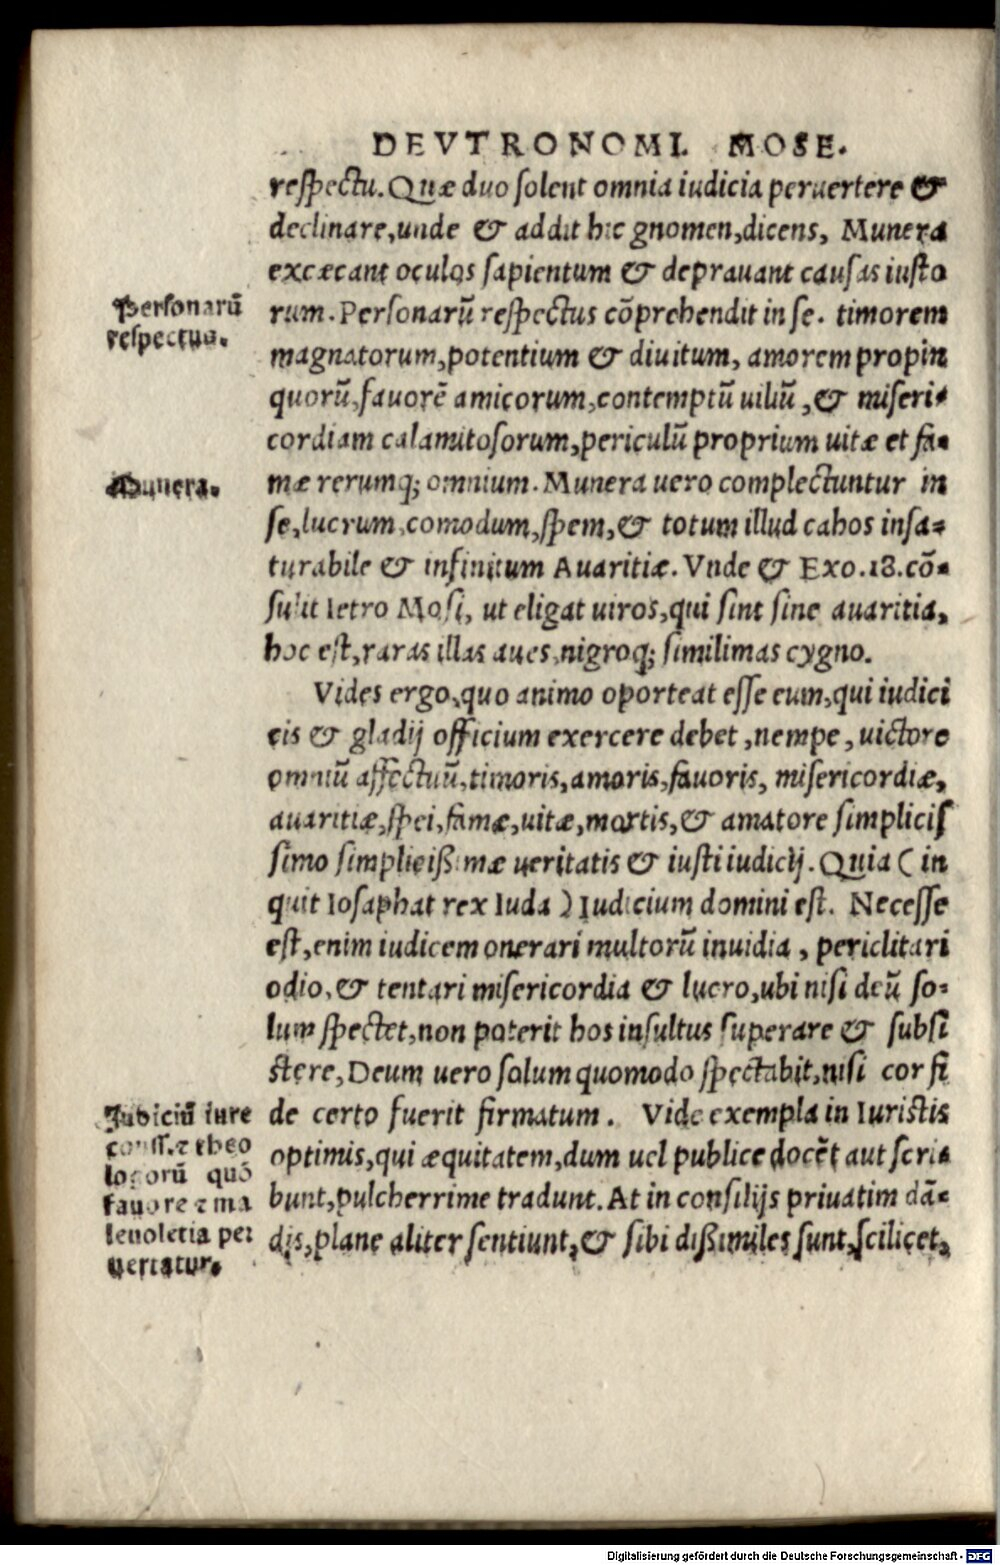 DEVTRONOMI. MOSE.
respectu. Quæ duo solent omnia iudicia peruertere &
declinare, unde & addit hic gnomen, dicens, Munera
excæcant oculos sapientum & deprauant causas iusto
rum. Personarũ respectus cõprehendit in se. timorem
magnatorum, potentium & diuitum, amorem propin
quorũ, fauorẽ amicorum, contemptũ uiliũ, & miseri-
cordiam calamitosorum, periculũ proprium uitæ et fa-
mæ rerumq; omnium. Munera uero complectuntur in
se, lucrum, comodum, spem, & totum illud cahos insa-
turabile & infinitum Auaritiæ. Vnde & Exo. 18. cõ-
sulit Ietro Mosi, ut eligat uiros, qui sint sine auaritia,
hoc est, raras illas aues, nigroq; similimas cygno.
Vides ergo, quo animo oporteat esse eum, qui iudici
cis & gladij officium exercere debet, nempe, uictore
omniũ affectuũ, timoris, amoris, fauoris, misericordiæ,
auaritiæ, spei, famæ, uitæ, mortis, & amatore simplicis
simo simplicißimæ ueritatis & iusti iudicij. Quia ( in
quit Iosaphat rex Iuda ) Iudicium domini est. Necesse
est, enim iudicem onerari multorũ inuidia, periclitari
odio, & tentari misericordia & lucro, ubi nisi deũ so-
lum spectet, non poterit hos insultus superare & subsi
stere, Deum uero solum quomodo spectabit, nisi cor fi
de certo fuerit firmatum. Vide exempla in Iuristis
optimis, qui æquitatem, dum uel publice docẽt aut scri-
bunt, pulcherrime tradunt. At in consilijs priuatim dã-
dis, plane aliter sentiunt, & sibi dißimiles sunt, scilicet,
Personarũ
respectus.
Munera.
Iudiciũ iure
conss. ⁊ theo
logorũ quõ
fauore ⁊ ma
leuoletia per
uertatur.
Digitalisierung gefördert durch die Deutsche Forschungsgemeinschaft - DFG